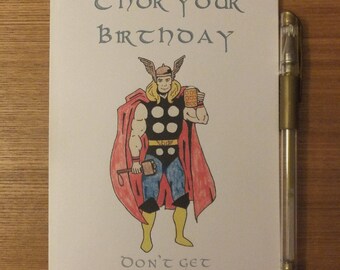 Thor your
Birthday
Don't get